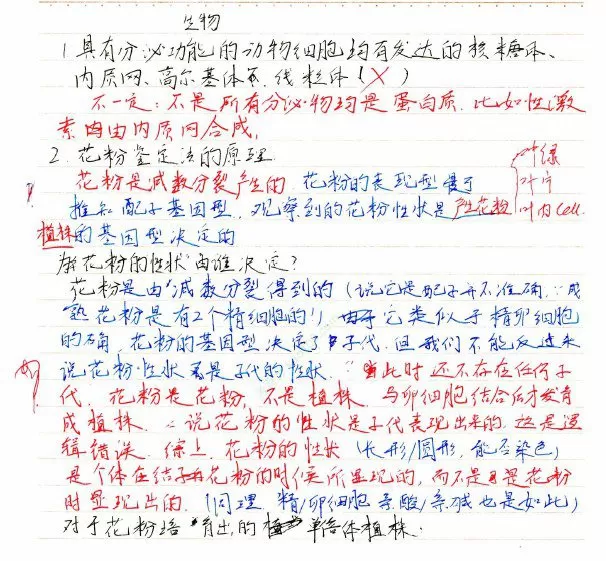 生物
1 具有分泌功能的动物细胞均有发达的核糖体、
内质网、高尔基体、线粒体（×）
不一定：不是所有分泌物均是蛋白质. 比如性激
素由内质网合成.
2. 花粉鉴定法的原理
叶绿
花粉是减数分裂产生的. 花粉的表现型
叶片
推知配子基因型. 观察到的花粉性状是产花粉
叶肉cell.
植株的基因型决定的
花粉的性状由谁决定？
花粉是由减数分裂得到的（说它是配子并不准确, ∵成
熟花粉是有2个精细胞的!）它类似于精卵细胞
的确, 花粉的基因型决定了子代. 但我们不能反过来
说花粉性状是子代的性状. ∵此时还不存在任何子
代. 花粉是花粉, 不是植株. 与卵细胞结合后才发育
成植株. ∴说花粉的性状是子代表现出来的. 这是逻
辑错误. 综上. 花粉的性状（长形/圆形, 能否染色）
是个体在结子花粉的时候所显现的, 而不是花粉
时显现出的.（同理. 精/卵细胞 也是如此）
对于花粉培育出的单倍体植株.